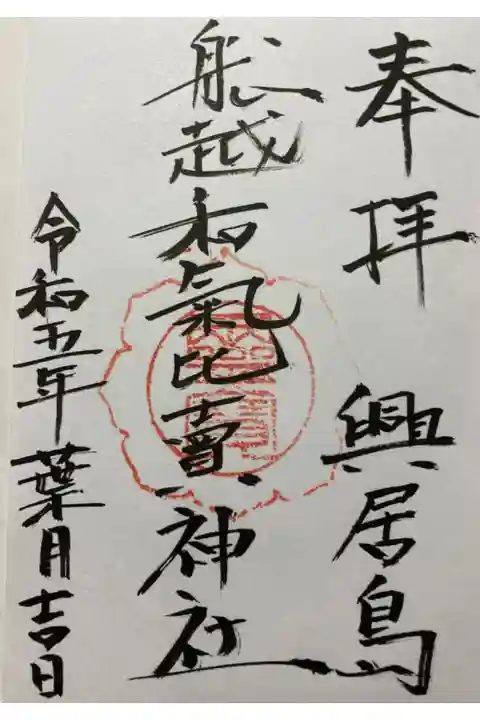 奉拝　興居島
船越和氣比賣神社
令和五年葉月吉日